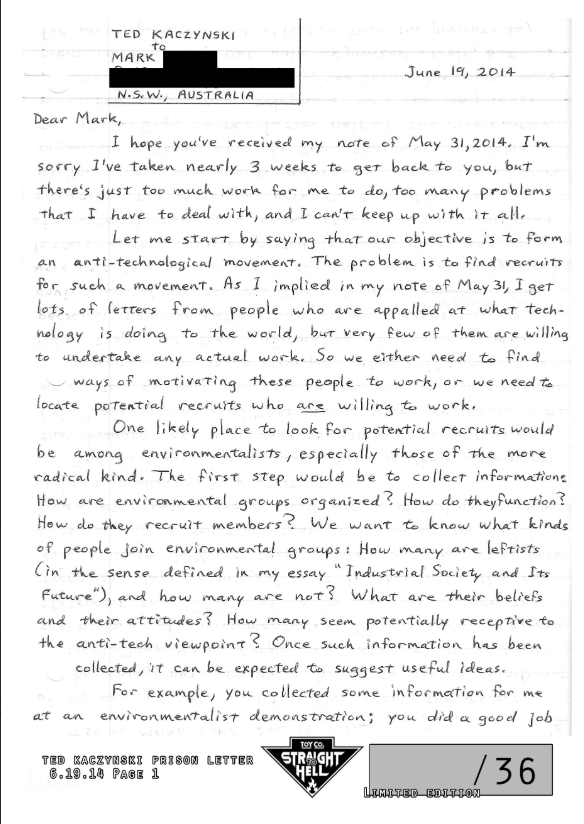 TED KACZYNSKI
to
MARK
N.S.W., AUSTRALIA
June 19, 2014
Dear Mark,
I hope you've received my note of May 31, 2014. I'm
sorry I've taken nearly 3 weeks to get back to you, but
there's just too much work for me to do, too many problems
that I have to deal with, and I can't keep up with it all.
Let me start by saying that our objective is to form
an anti-technological movement. The problem is to find recruits
for such a movement. As I implied in my note of May 31, I get
lots of letters from people who are appalled at what tech-
nology is doing to the world, but very few of them are willing
to undertake any actual work. So we either need to find
ways of motivating these people to work, or we need to
locate potential recruits who are willing to work.
One likely place to look for potential recruits would
be among environmentalists, especially those of the more
radical kind. The first step would be to collect information:
How are environmental groups organized? How do they function?
How do they recruit members? We want to know what kinds
of people join environmental groups: How many are leftists
(in the sense defined in my essay "Industrial Society and Its
Future"), and how many are not? What are their beliefs
and their attitudes? How many seem potentially receptive to
the anti-tech viewpoint? Once such information has been
collected, it can be expected to suggest useful ideas.
For example, you collected some information for me
at an environmentalist demonstration; you did a good job
TED KACZYNSKI PRISON LETTER
6.19.14 PAGE 1
TOY CO.
STRAIGHT
TO
HELL
/36
LIMITED EDITION